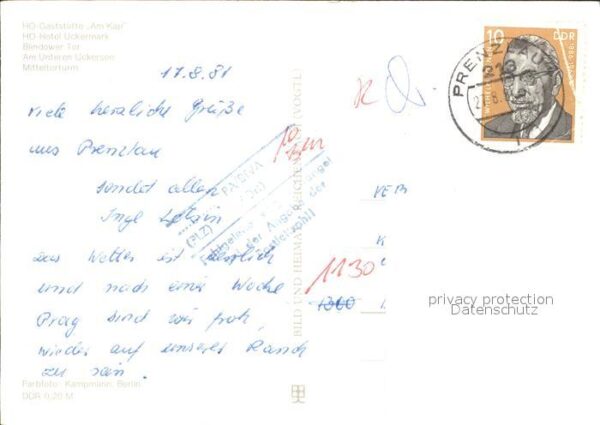 HO-Gaststätte „Am Kap"
HO-Hotel Uckermark
Blindower Tor
Am Unteren Uckersee
Mitteltorturm
17.8.81
viele herzliche Grüße
aus Prenzlau
sendet allen
Inge
Das Wetter ist herrlich
und nach einer Woche
Prag sind wir froh,
wieder auf unserer Ranch
zu sein.
Farbfoto: Kampmann, Berlin
DDR 0,20 M
BILD UND HEIMAT REICHENBACH (VOGTL)
(PLZ)
der Angabe der
Postleitzahl!
1130
10
DDR
PRENZLAU
privacy protection
Datenschutz